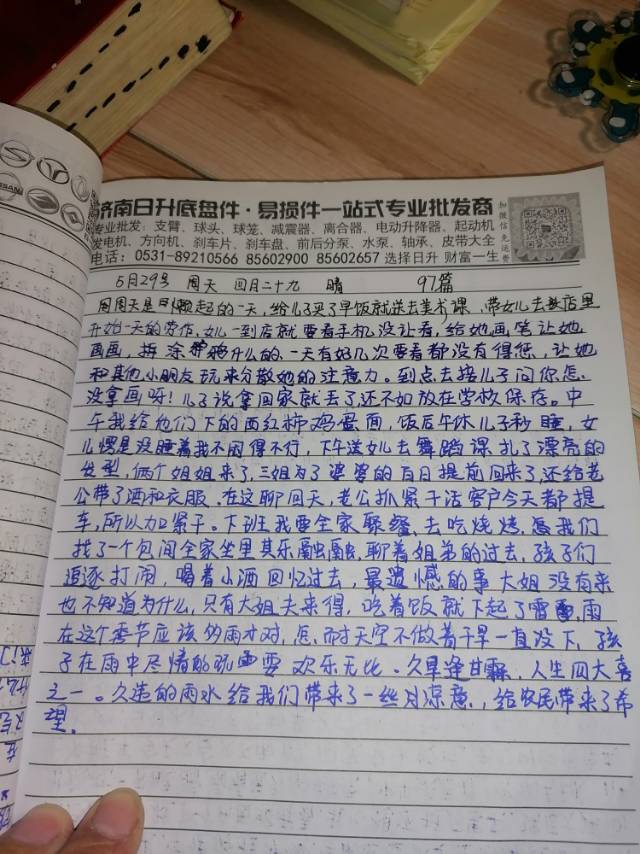 济南日升底盘件·易损件一站式专业批发商
专业批发：支臂、球头、球笼、减震器、离合器、电动升降器、起动机
发电机、方向机、刹车片、刹车盘、前后分泵、水泵、轴承、皮带大全
电话：0531-89210566 85602900 85602657 选择日升 财富一生
加微信免运费
5月29号 周天 四月二十九 晴 97篇
周周天是目懒起的一天，给儿子买了早饭就送去美术课，带女儿去店里
开始一天的劳作，女儿一到店就要看手机没让看，给她画笔让她
画画，拼涂鸦什么的一天有好几次要看都没有得惩，让她
和其他小朋友玩来分散她的注意力。到点去接儿子问你怎
没拿画呀！儿子说拿回家就丢了还不如放在学校保存。中
午我给他们下的西红柿鸡蛋面，饭后午休儿子秒睡，女
儿愣是没睡着我不困得不行，下午送女儿去舞蹈课扎了漂亮的
发型，俩个姐姐来了，三姐为了婆婆的百日提前回来了，还给老
公带了酒和衣服，在这聊回天，老公抓紧干活客户今天都提
车，所以加紧干。下班我要全家聚餐，去吃烧烤，我们
找了一个包间全家坐里其乐融融，聊着姐弟的过去，孩子们
追逐打闹，喝着小酒回忆过去，最遗憾的事大姐没有来
也不知道为什么，只有大姐夫来得，吃着饭就下起了雷雨，雨
在这个季节应该多雨才对，怎耐天空不做着干旱一直没下，孩
子在雨中尽情的玩耍欢乐无比。久旱逢甘霖，人生四大喜
之一。久违的雨水给我们带来了一丝丝凉意，给农民带来了希
望。